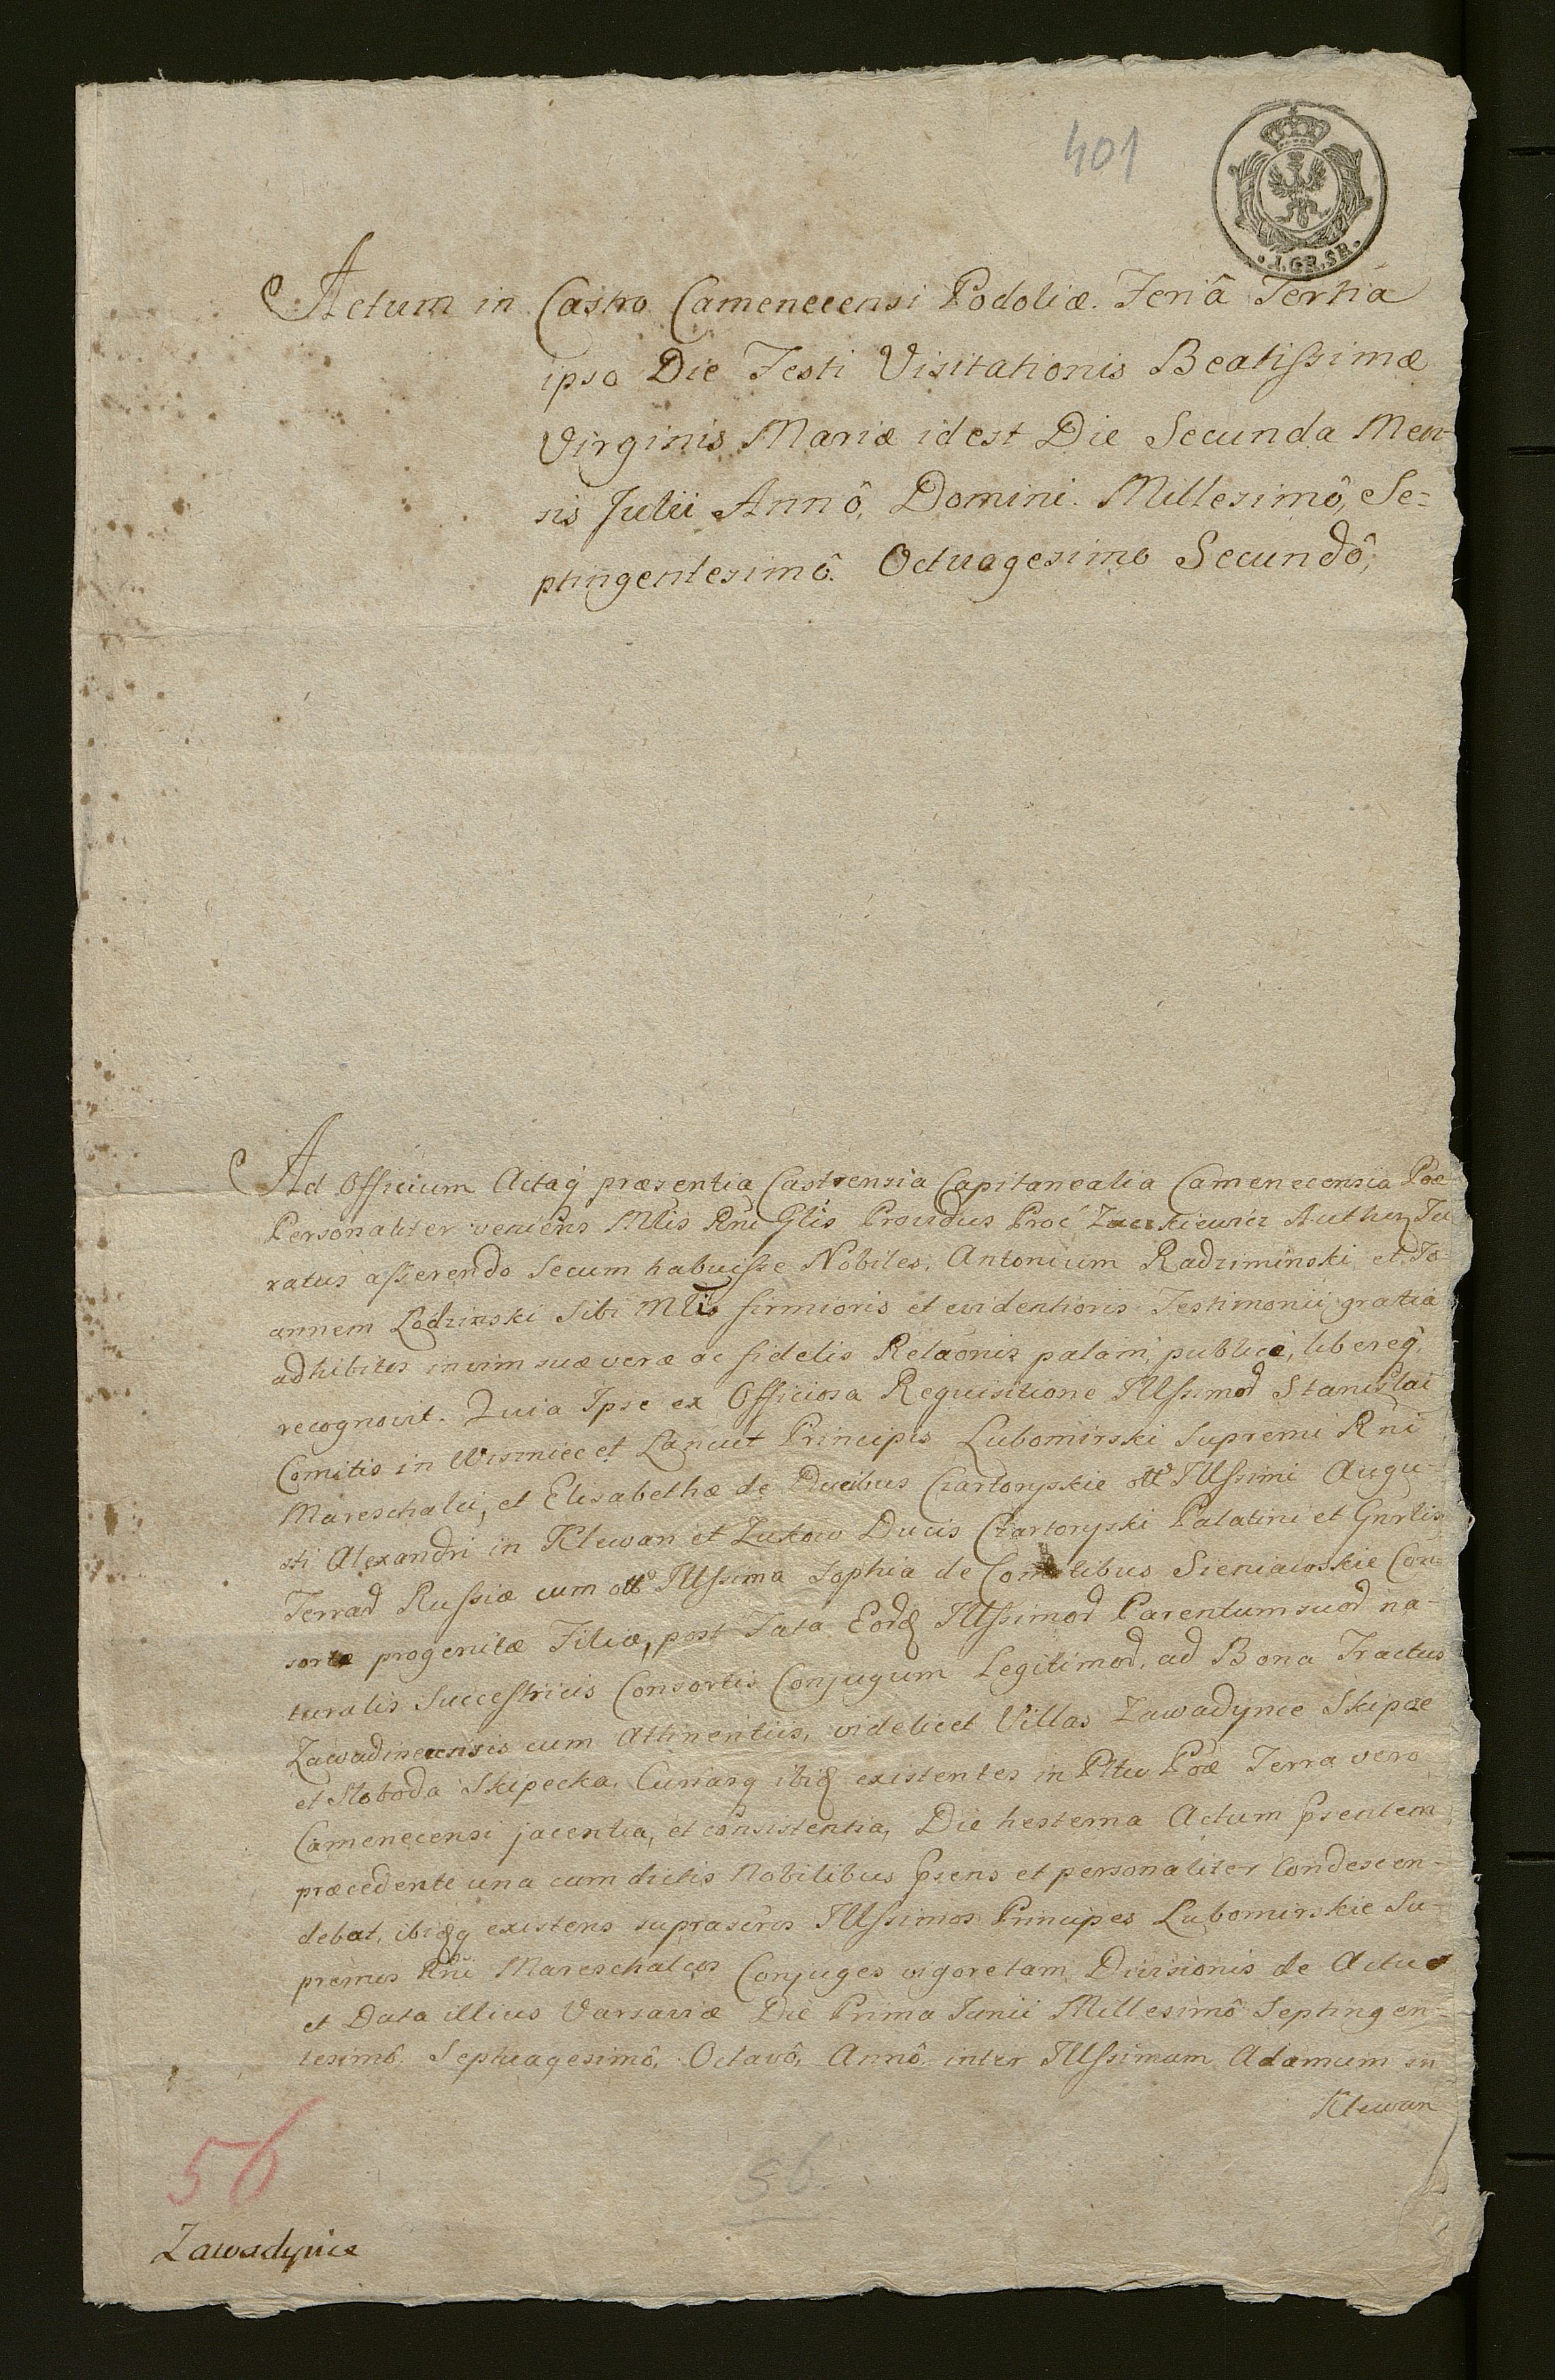 401
1.GR.SR.
Actum in Castro Camenecensi Podoliæ. Feriâ Tertia
ipso Die Festi Visitationis Beatissimæ
Virginis Mariæ idest Die Secunda Men-
sis Julii Annô, Domini. Millesimô, Se=
ptingentesimô. Octuagesimo Secundô,
Ad Officium Actaq́ præsentia Castrensia Capitanealia Camenecensia Poe
Personaliter veniens Mtis Rni Glis Providus Authen Ju
ratus asserendo Secum habuisse Nobiles, Antonium Radziminski et Jo-
annem Lodzinski Sibi Mtis firmioris et evidentioris Testimonii gratia
adhibitos invim suæ veræ ac fidelis Relaōnis palam, publicè, libereq́
recognovit. Quia Ipse ex Officiosa Requisitione Illssimoꝝ Stanislai
Comitis in Wisnniec et Lancut Principis Lubomirski Supremi Rni
Mareschalci, et Elisabethæ de Ducibus Czartoryskie ott Illssimi Augu-
sti Alexandri in Klewan et Zukow Ducis Czartoryski Palatini et Gnrlis
Terraꝝ Russiæ cum ott Illssima Sophia de Comitibus Sieniawskie Con-
sorte progenitæ Filiæ, post Fata Eorꝝ Illssimoꝝ Parentum suoꝝ na-
turalis Successtricis Consortis Conjugum Legitimoꝝ, ad Bona Tractus
Zawadinecensis cum Attinentiis, videlicet Villas Zawadynce Skipcze
et Sloboda Skipecka, Curiasq ibiꝫ existentes in Pltu Podæ Terra vero
Camenecensi jacentia, et consistentia, Die hesterna Actum ꝑsentem
præcedente una cum dictis Nobilibus ꝑsens et personaliter Condescen-
debat, ibiꝫq existens suprascros Illssimos Principes Lubomirskie Su-
premos Rni Mareschalcos Conjuges vigore tam Divisionis de Actu
et Data illius Varsaviæ Die Prima Junii Millesimô Septingen-
tesimô. Septuagesimô, Octavô, Annô inter Illssimum Adamum in
Klewan
56
56
Zawadynce